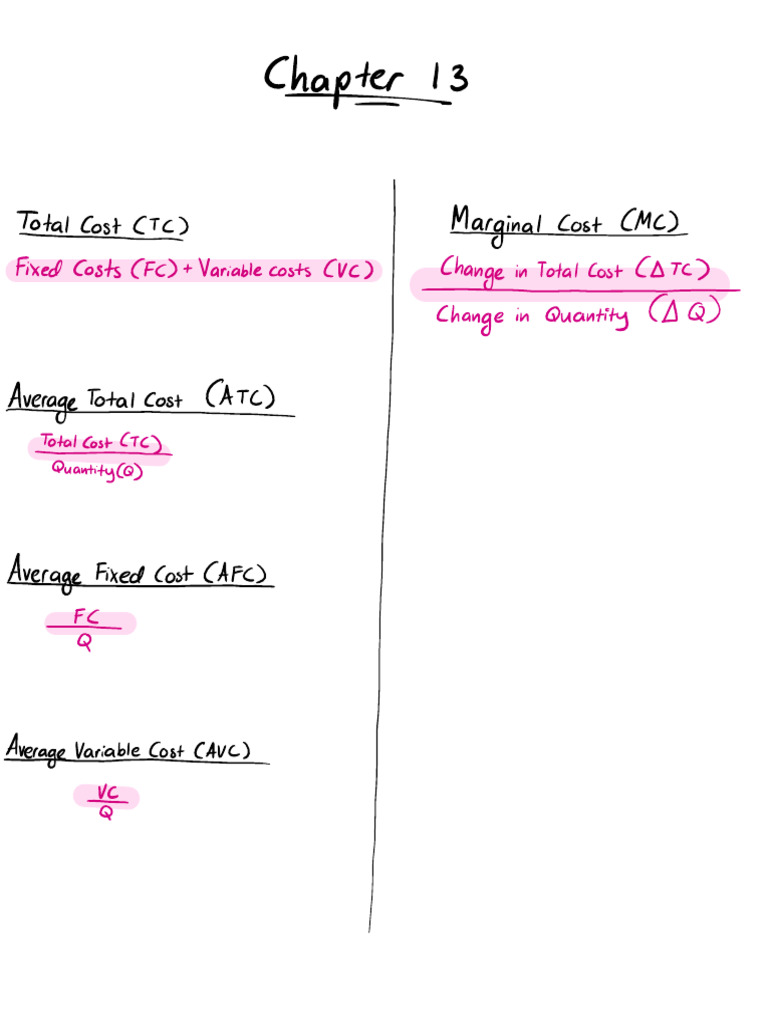 Chapter 13
Total Cost (TC)
Fixed Costs (FC) + Variable costs (VC)
Average Total Cost (ATC)
Total Cost (TC)
Quantity (Q)
Average Fixed Cost (AFC)
FC
Q
Average Variable Cost (AVC)
VC
Q
Marginal Cost (MC)
Change in Total Cost (Δ TC)
Change in Quantity (Δ Q)